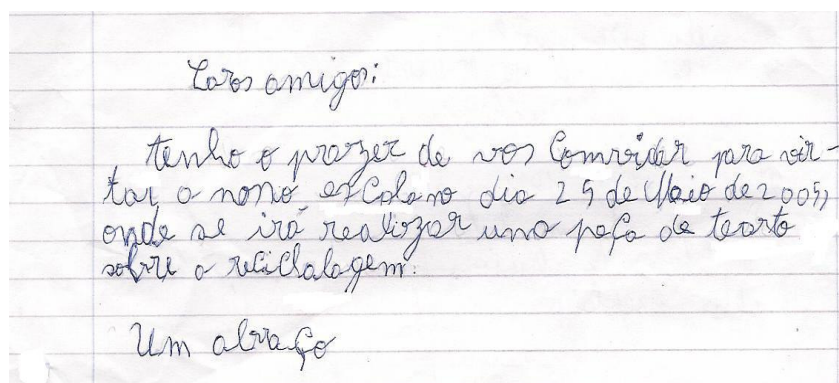 Caros amigos:
tenho o prazer de vos Comvidar para vir-
tar a nono escola no dia 25 de Maio de 2005,
onde se irá realizar uma peça de tearto
sobre a reciChalagem.
Um abraço